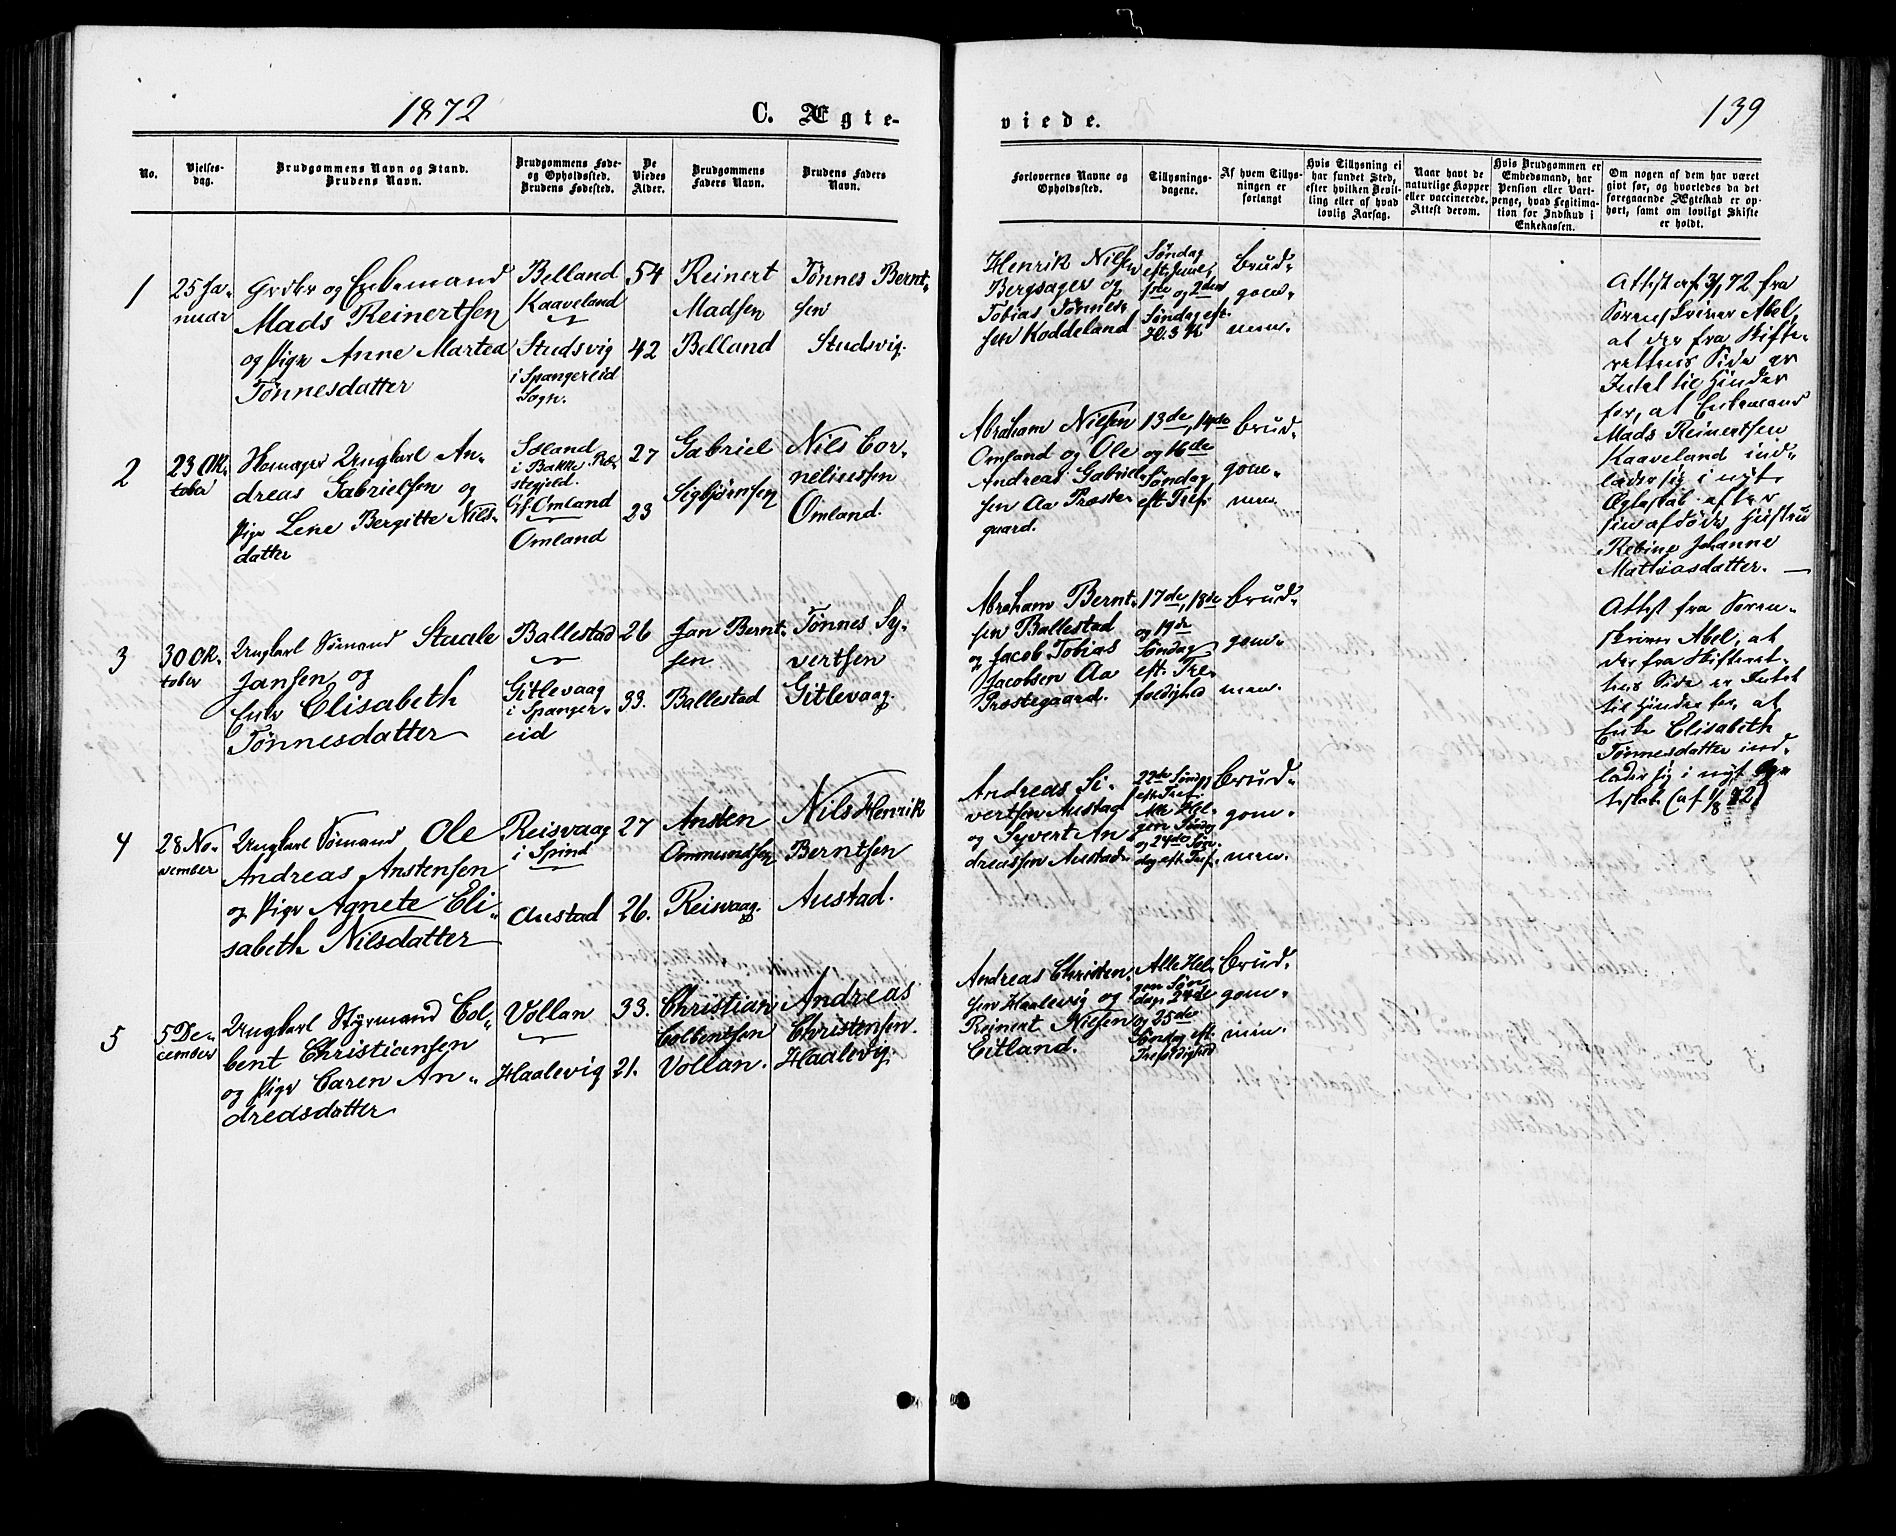 1872
C. Ægte-
viede.
139
No.
Vielses-
dag.
Brudgommens Navn og Stand.
Brudens Navn.
Brudgommens Føde-
og Opholdssted.
Brudens Fødested.
De
Viedes
Alder.
Brudgommens
Faders Navn.
Brudens Faders
Navn.
Forlovernes Navne og
Opholdssted.
Tillysnings-
dagene.
Af hvem Tillys-
ningen er
forlangt
Hvis Tillysning ei
har fundet Sted,
efter hvilken Bevil-
ling eller af hvad
lovlig Aarsag.
Naar havt de
naturlige Kopper
eller vaccinerede.
Attest derom.
Hvis Brudgommen er
Embedsmand, har
Pension eller Vart-
penge, hvad Legitima-
tion for Indskud i
Enkekassen.
Om nogen af dem har været
gift før, og hvorledes da det
foregaaende Ægteskab er op-
hørt, samt om lovligt Skifte
er holdt.
1
25 Ja-
nuar
Grdbr og Enkemand
Mads Reinertsen
og Pige Anne Martea
Tønnesdatter
Belland
Kaaveland
Studsvig
i Spangereid
Sogn.
54
42
Reinert
Madsen
Belland
Tønnes Bernt-
sen
Studsvig.
Henrik Nilsen
Bergsager og
Tobias Tønnes-
sen Koddeland
Søndag
1ste og 2den
Søndag eft.
H. 3 K.
Brud-
gom-
men.
Attest af 3/1 72 fra
Sorenskriver Abel,
at der fra Skifte-
rettens Side er
Intet til Hinder
for, at Enkemand
Mads Reinertsen
Kaaveland ind-
lader sig i nyt
Ægteskab efter
sin afdøde Hustru
Rebine Johanne
Mathiasdatter. —
2
23 Ok-
tober
Ungkarl An-
dreas Gabrielsen og
Pige Lene Bergitte Nils-
datter
i Bakke Præ-
stegjeld.
Omland
Omland
27
23
Gabriel
Sigbjørnsen
Nils Cor-
neliussen
Omland.
Abraham Nilsen
Omland og Ole
Andreas Gabriel-
sen Aa Præste-
gaard.
13de, 14de
og 16de
Søndag
eft Tref.
Brud-
gom-
men.
3
30 Ok-
tober
Ungkarl Sømand Staale
Jansen og
Enke Elisabeth
Tønnesdatter
Ballestad
Gitlevaag
i Spanger-
eid
26
33.
Jan Bernt-
sen
Ballestad
Tønnes Sy-
vertsen
Gitlevaag.
Abraham Bernt-
sen Ballestad
og Jacob Tobias
Jacobsen Aa
Præstegaard.
17de, 18de
og 19de
Søndag
eft. Tre-
foldighed
Brud-
gom-
men.
Attest fra Soren-
skriver Abel, at
der fra Skifteret-
tens Side er Intet
til Hinder for, at
Enke Elisabeth
Tønnesdatter ind-
lader sig i nyt Æg-
teskab (af 1/8 72)
4
28 No-
vember
Ungkarl Sømand Ole
Andreas Anstensen
og Pige Agnete Eli-
sabeth Nilsdatter
Reisvaag
i Spind
Austad
27
26.
Ansten
Ommundsen
Reisvaag.
Nils Henrik
Berntsen
Austad.
Andreas Si-
vertsen Austad
og Syvert An-
dreassen Austad.
22de Søndag
eft Tref.
Alle Hel-
gen Søndag
og 24de Søn-
dag eft. Tref.
Brud-
gom-
men.
5
5 De-
cember
Ungkarl Styrmand Col-
bent Christiansen
og Pige Caren An-
dreasdatter
Vollan
Haalevig
33.
21.
Christian
Colbentsen
Vollan.
Andreas
Christensen.
Haalevig
Andreas Christen-
sen Haalevig og
Reinert Nilsen
Eitland.
Alle Hel-
gen Søn-
dag, 24de
og 25de
Søndag eft.
Trefoldighed
Brud-
gom-
men.